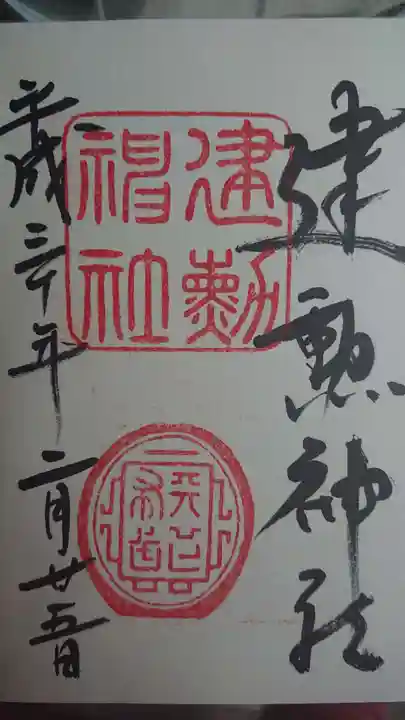 建勲神社
建勲
神社
天下布武
平成三十年二月廿五日